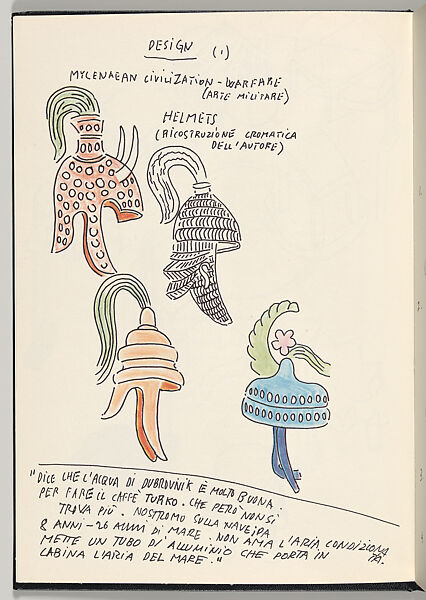 DESIGN (1)
MYCENAEAN CIVILIZATION - WARFARE
(ARTE MILITARE)
HELMETS
(RICOSTRUZIONE CROMATICA
DELL'AUTORE)
"DICE CHE L'ACQUA DI DUBROVNIK È MOLTO BUONA
PER FARE IL CAFFÈ TURKO. CHE PERÒ NON SI
TROVA PIÙ. NOSTROMO SULLA NAVE DA
8 ANNI - 26 ANNI DI MARE. NON AMA L'ARIA CONDIZIONA
TA.
METTE UN TUBO DI ALLUMINIO CHE PORTA IN
CABINA L'ARIA DEL MARE."